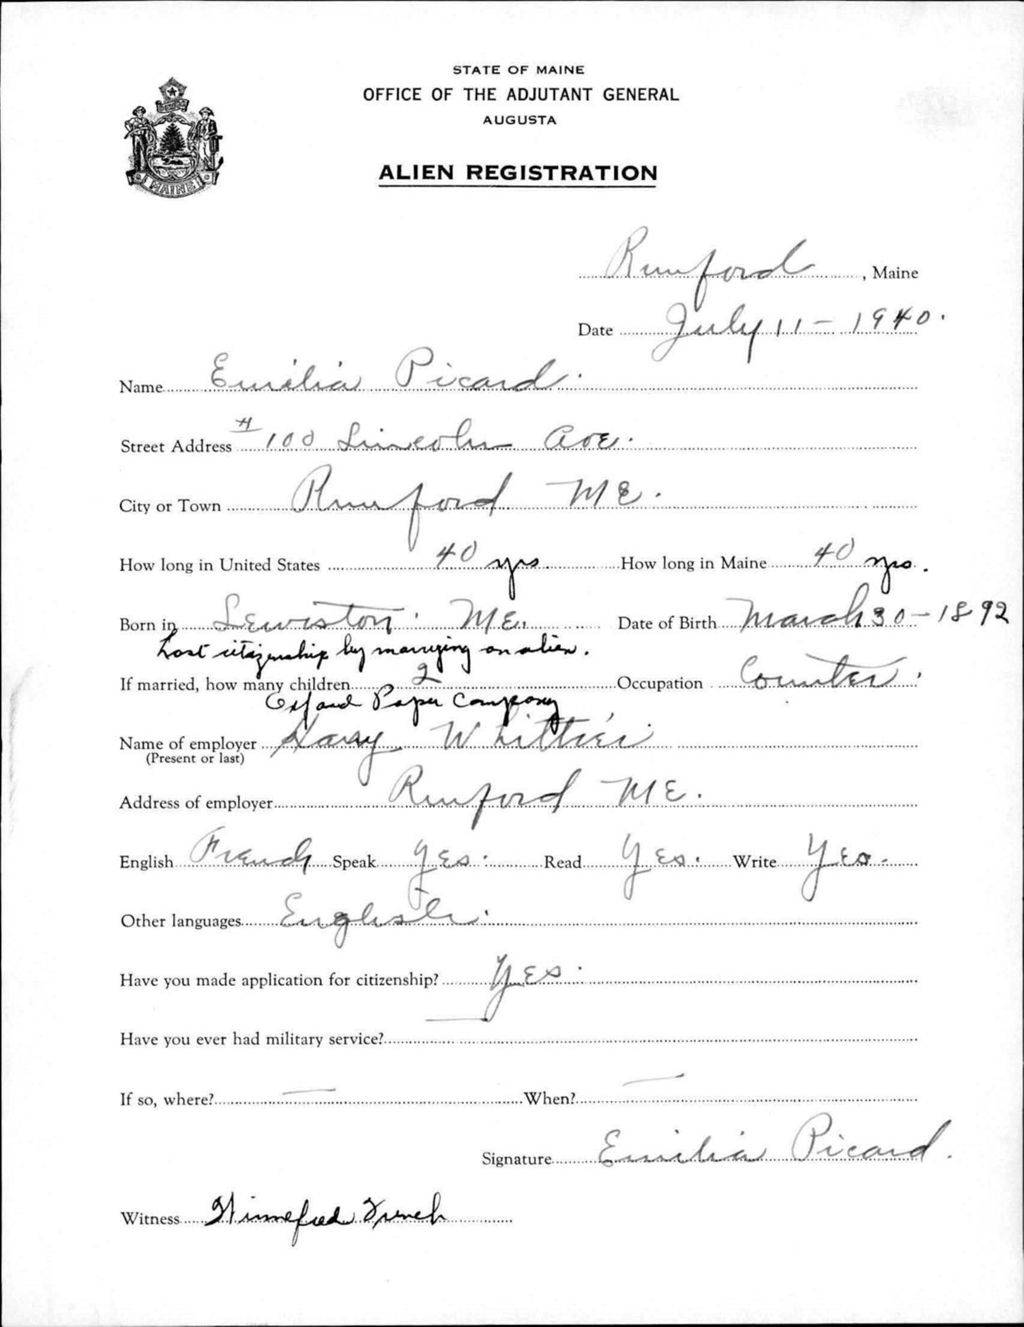 STATE OF MAINE
OFFICE OF THE ADJUTANT GENERAL
AUGUSTA
ALIEN REGISTRATION
MAINE
Rumford, Maine
Date July 11 - 1940.
Name Emilia Picard.
Street Address # 100 Lincoln Ave.
City or Town Rumford ME.
How long in United States 40 yrs. How long in Maine 40 yrs.
Born in Lewiston. ME. Date of Birth March 30 - 1892
Lost citizenship by marrying an alien.
If married, how many children 2 Occupation Counter.
Oxford Paper Company
Name of employer Harry Whittier
(Present or last)
Address of employer Rumford ME.
English French Speak Yes. Read Yes. Write Yes.
Other languages English.
Have you made application for citizenship? Yes.
Have you ever had military service? —
If so, where? — When? —
Signature Emilia Picard.
Witness Winnefred French